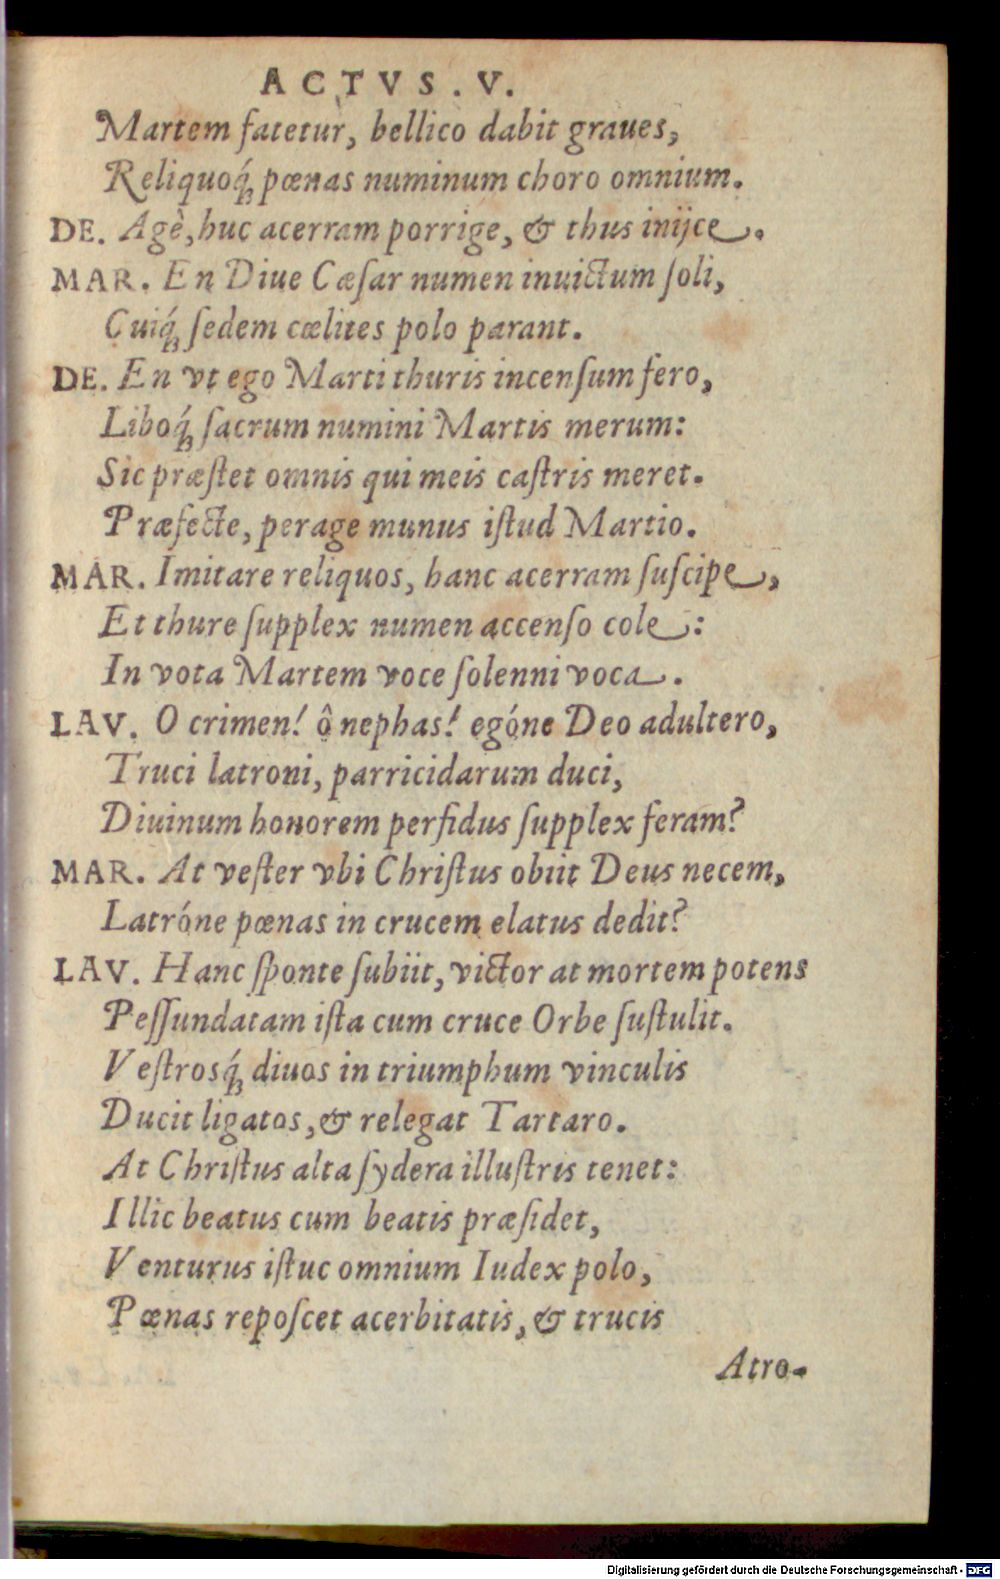 ACTVS. V.
Martem fatetur, bellico dabit graues,
Reliquoq́ꝫ pœnas numinum choro omnium.
DE. Agè, huc acerram porrige, & thus inijce.
MAR. En Diue Cæſar numen inuictum ſoli,
Cuiq́ꝫ ſedem cælites polo parant.
DE. En vt ego Marti thuris incenſum fero,
Liboq́ꝫ ſacrum numini Martis merum:
Sic præſtet omnis qui meis caſtris meret.
Præfecte, perage munus iſtud Martio.
MAR. Imitare reliquos, hanc acerram ſuſcipe,
Et thure ſupplex numen accenſo cole:
In vota Martem voce ſolenni voca.
LAV. O crimen! ô nephas! egóne Deo adultero,
Truci latroni, parricidarum duci,
Diuinum honorem perfidus ſupplex feram?
MAR. At veſter vbi Chriſtus obiit Deus necem,
Latróne pœnas in crucem elatus dedit?
LAV. Hanc ſponte ſubiit, victor at mortem potens
Peſſundatam iſta cum cruce Orbe ſuſtulit.
Veſtrosq́ꝫ diuos in triumphum vinculis
Ducit ligatos, & relegat Tartaro.
At Chriſtus alta ſydera illuſtris tenet:
Illic beatus cum beatis præſidet,
Venturus iſtuc omnium Iudex polo,
Pœnas repoſcet acerbitatis, & trucis
Atro-
Digitalisierung gefördert durch die Deutsche Forschungsgemeinschaft - DFG